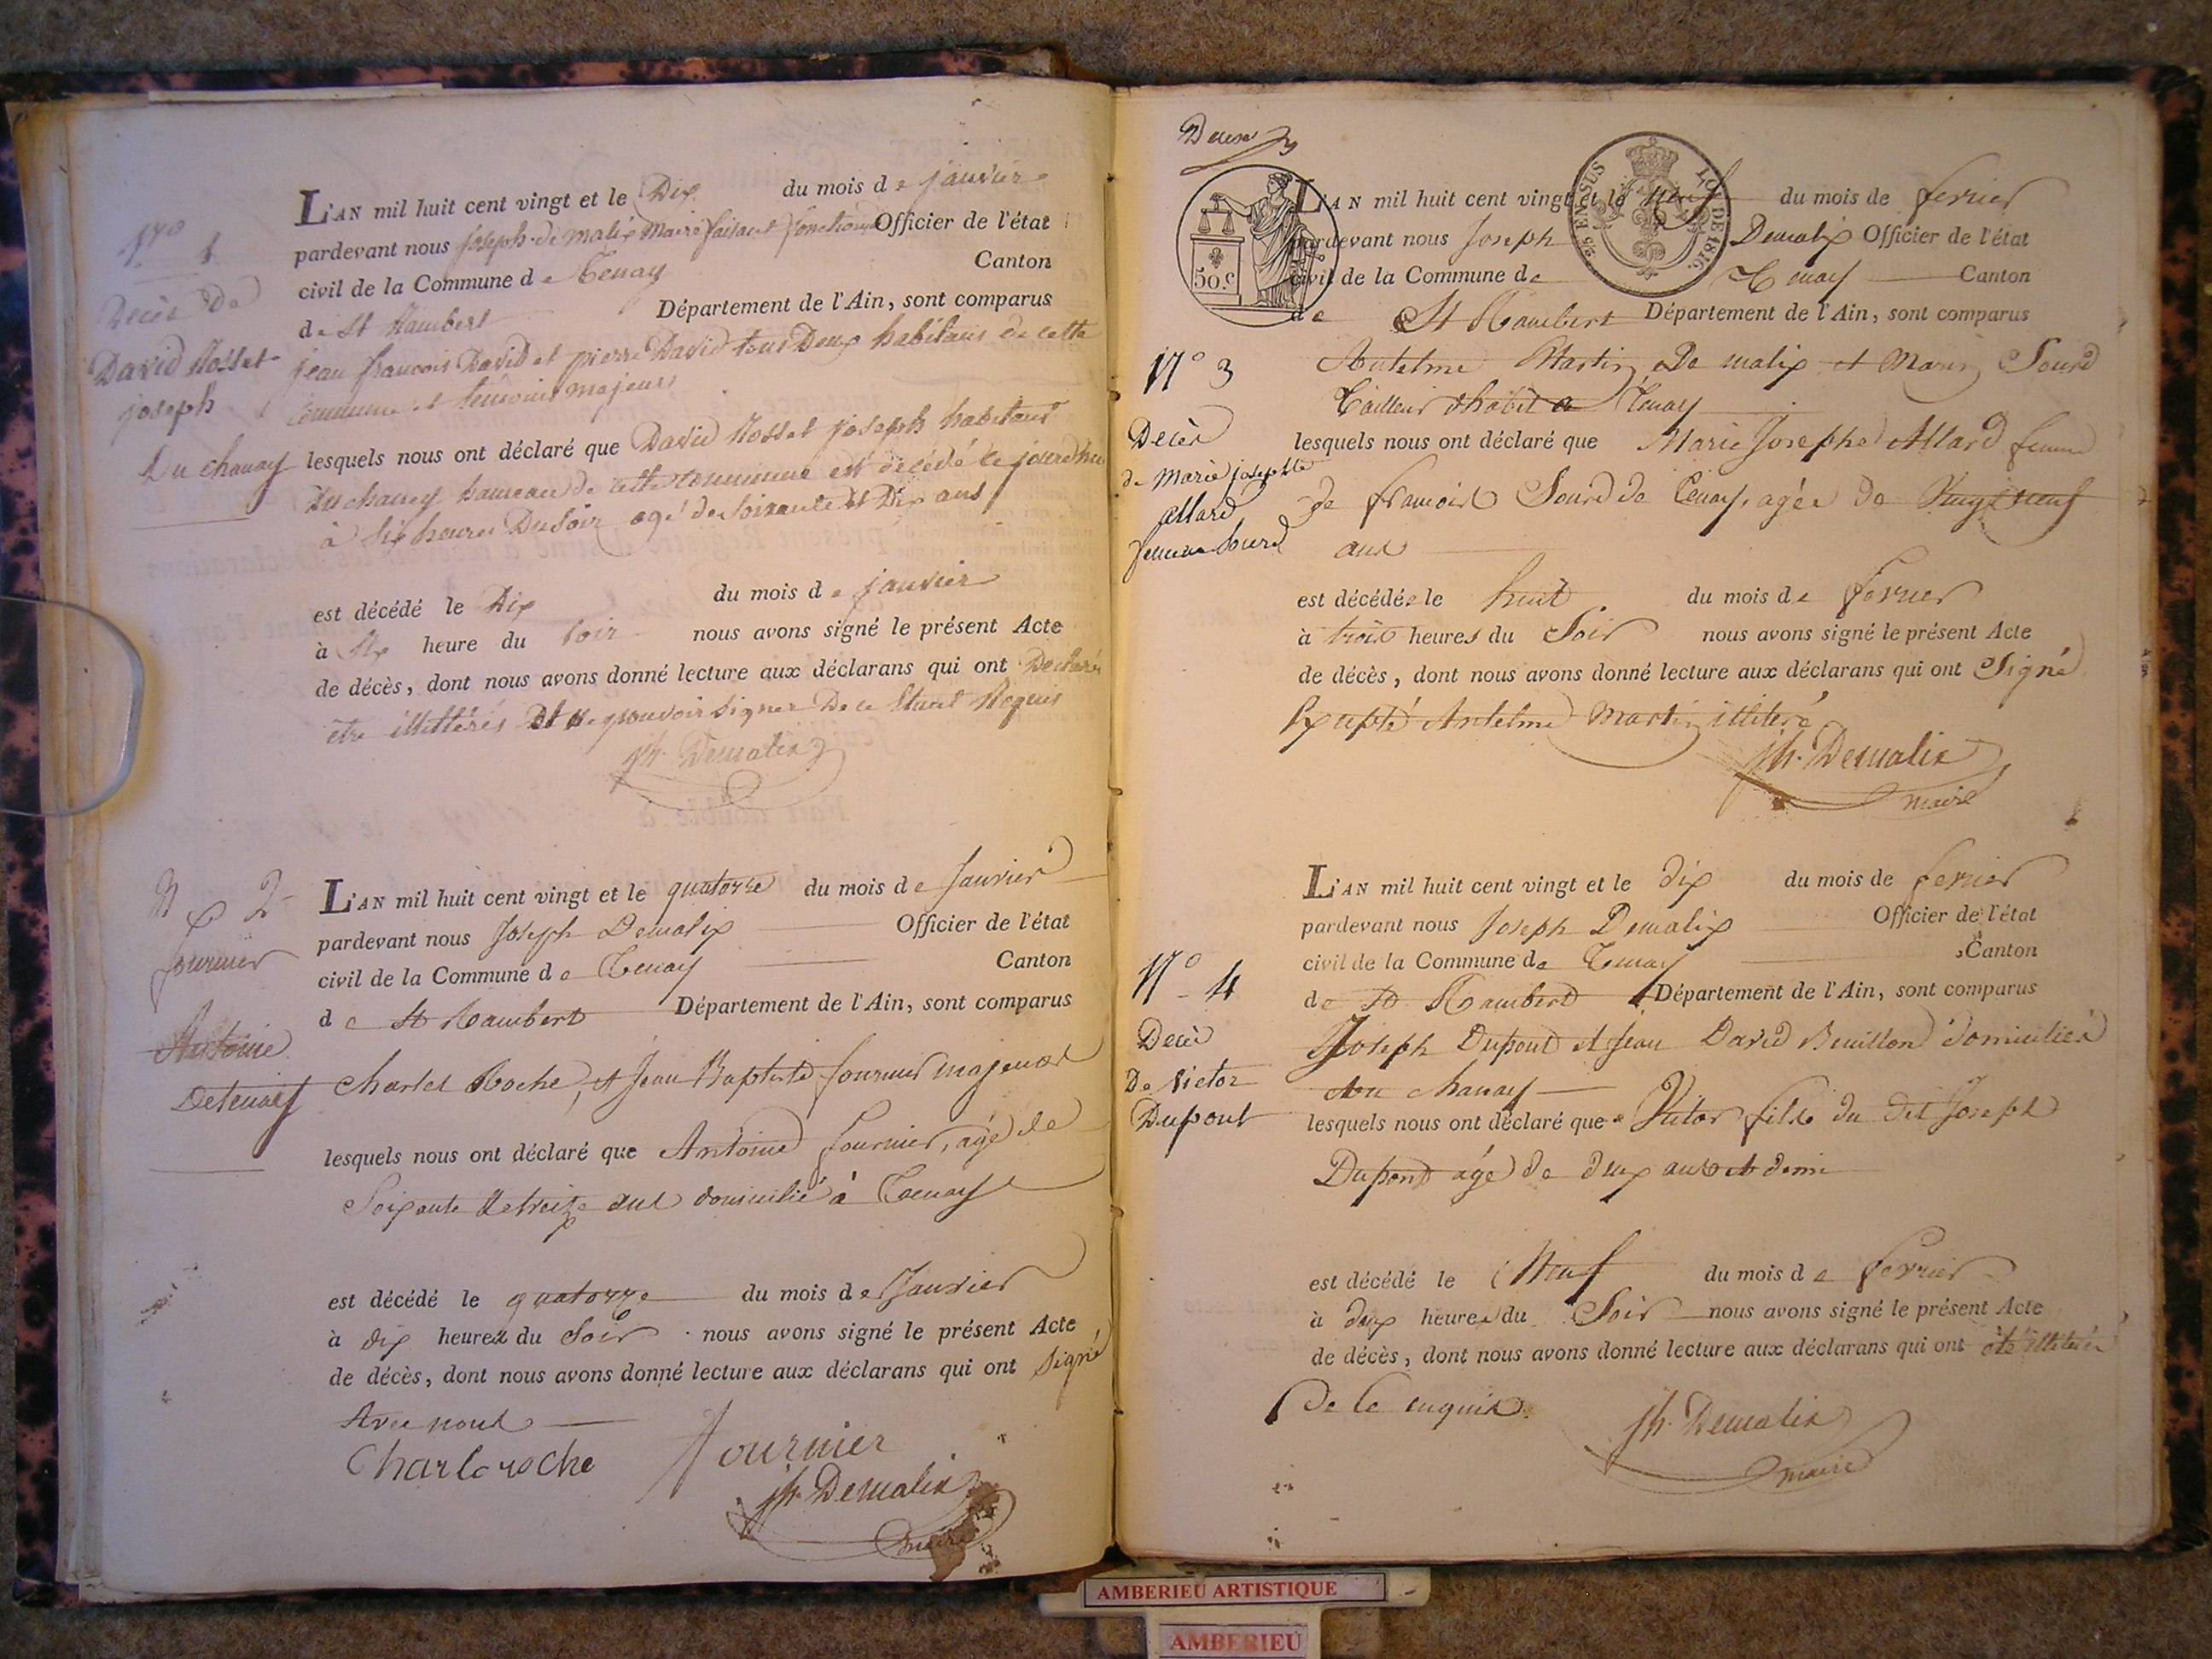 N° 1
Decès de
David Rosset
joseph
Du chanay
L'AN mil huit cent vingt et le Dix du mois de janvier
pardevant nous joseph demalix Maire faisant fonctions Officier de l'état
civil de la Commune de Tenay Canton
de St Rambert Département de l'Ain, sont comparus
jean francois David et pierre David tous Deux habitans de cette
commune et temoins majeurs
lesquels nous ont déclaré que David Rosset joseph habitant
Du chaney hameau de cette commune est décédé ce jourdhui
à six heures Du soir agé de soixante et Dix ans
est décédé le Dix du mois de janvier
à Six heure du soir nous avons signé le présent Acte
de décès, dont nous avons donné lecture aux déclarans qui ont Declarés
etre illittérés et ne pouvoir signer De ce Requis
jh. Demalix
N 2
fournier
Antoine
De tenay
L'AN mil huit cent vingt et le quatorze du mois de Janvier
pardevant nous Joseph Demalix Officier de l'état
civil de la Commune de Tenay Canton
de St Rambert Département de l'Ain, sont comparus
Charles Roche, et Jean Baptiste fournier majeurs
lesquels nous ont déclaré que Antoine fournier, agé de
Soixante et treize ans domicilié à Tenay
est décédé le quatorze du mois de Janvier
à dix heures du Soir nous avons signé le présent Acte
de décès, dont nous avons donné lecture aux déclarans qui ont signé
Avec nous
Charle roche fournier
jh. Demalix
maire
50.c
2/5 EN SUS LOI DE 1816.
N° 3
Decès
de Marie josephte
allard
femme Sourd
L'AN mil huit cent vingt et le Neuf du mois de fevrier
pardevant nous Joseph Demalix Officier de l'état
civil de la Commune de Tenay Canton
de St Rambert Département de l'Ain, sont comparus
Antelme Martin De malix et Marin Sourd
Tailleur d'habit a Tenay
lesquels nous ont déclaré que Marie Josephe Allard femme
de francois Sourd de Tenay, agée de Vingt neuf
ans
est décédée le huit du mois de fevrier
à trois heures du Soir nous avons signé le présent Acte
de décès, dont nous avons donné lecture aux déclarans qui ont Signé
Excepté Antelme Martin illiteré
jh. Demalix
maire
N° 4
Decè
De Victor
Dupont
L'AN mil huit cent vingt et le dix du mois de fevrier
pardevant nous Joseph Demalix Officier de l'état
civil de la Commune de Tenay Canton
de St Rambert Département de l'Ain, sont comparus
Joseph Dupont et Jean David Bouillon domiciliés
Au chanay
lesquels nous ont déclaré que Victor fils du dit Joseph
Dupont agé de deux ans et demi
est décédé le Neuf du mois de fevrier
à deux heures du Soir nous avons signé le présent Acte
de décès, dont nous avons donné lecture aux déclarans qui ont été illiterés
De ce enquis.
jh. Demalix
maire
AMBERIEU ARTISTIQUE
AMBERIEU